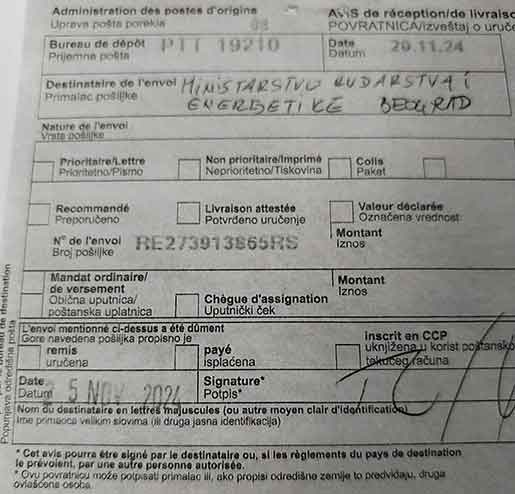 Administration des postes d'origine
Uprava pošta porekla
AVIS de réception/de livraison
POVRATNICA/izveštaj o uruče
Bureau de dépôt PTT 19210
Prijemna pošta
Date 20.11.24
Datum
Destinataire de l'envoi MINISTARSTVO RUDARSTVA I
Primalac pošiljke ENERGETIKE BEOGRAD
Nature de l'envoi
Vrsta pošiljke
Prioritaire/Lettre
Prioritetno/Pismo
Non prioritaire/Imprimé
Neprioritetno/Tiskovina
Colis
Paket
Recommandé
Preporučeno
Livraison attestée
Potvrđeno uručenje
Valeur déclarée
Označena vrednost
N° de l'envoi RE273913865RS
Broj pošiljke
Montant
Iznos
Mandat ordinaire/
de versement
Obična uputnica/
poštanska uplatnica
Chègue d'assignation
Uputnički ček
Montant
Iznos
L'envoi mentionné ci-dessus a été dûment
Gore navedena pošiljka propisno je
remis
uručena
payé
isplaćena
inscrit en CCP
uknjižena u korist poštansko
tekućeg računa
Date
Datum 25 NOV 2024
Signature*
Potpis*
Nom du destinataire en lettres majuscules (ou autre moyen clair d'identification)
Ime primaoca velikim slovima (ili druga jasna identifikacija)
* Cet avis pourra être signé par le destinataire ou, si les règlements du pays de destination
le prévoient, par une autre personne autorisée.
* Ovu povratnicu može potpisati primalac ili, ako propisi odredišne zemlje to predviđaju, druga
ovlašćena osoba.
Bureau de destination
Popunjava odredišna pošta